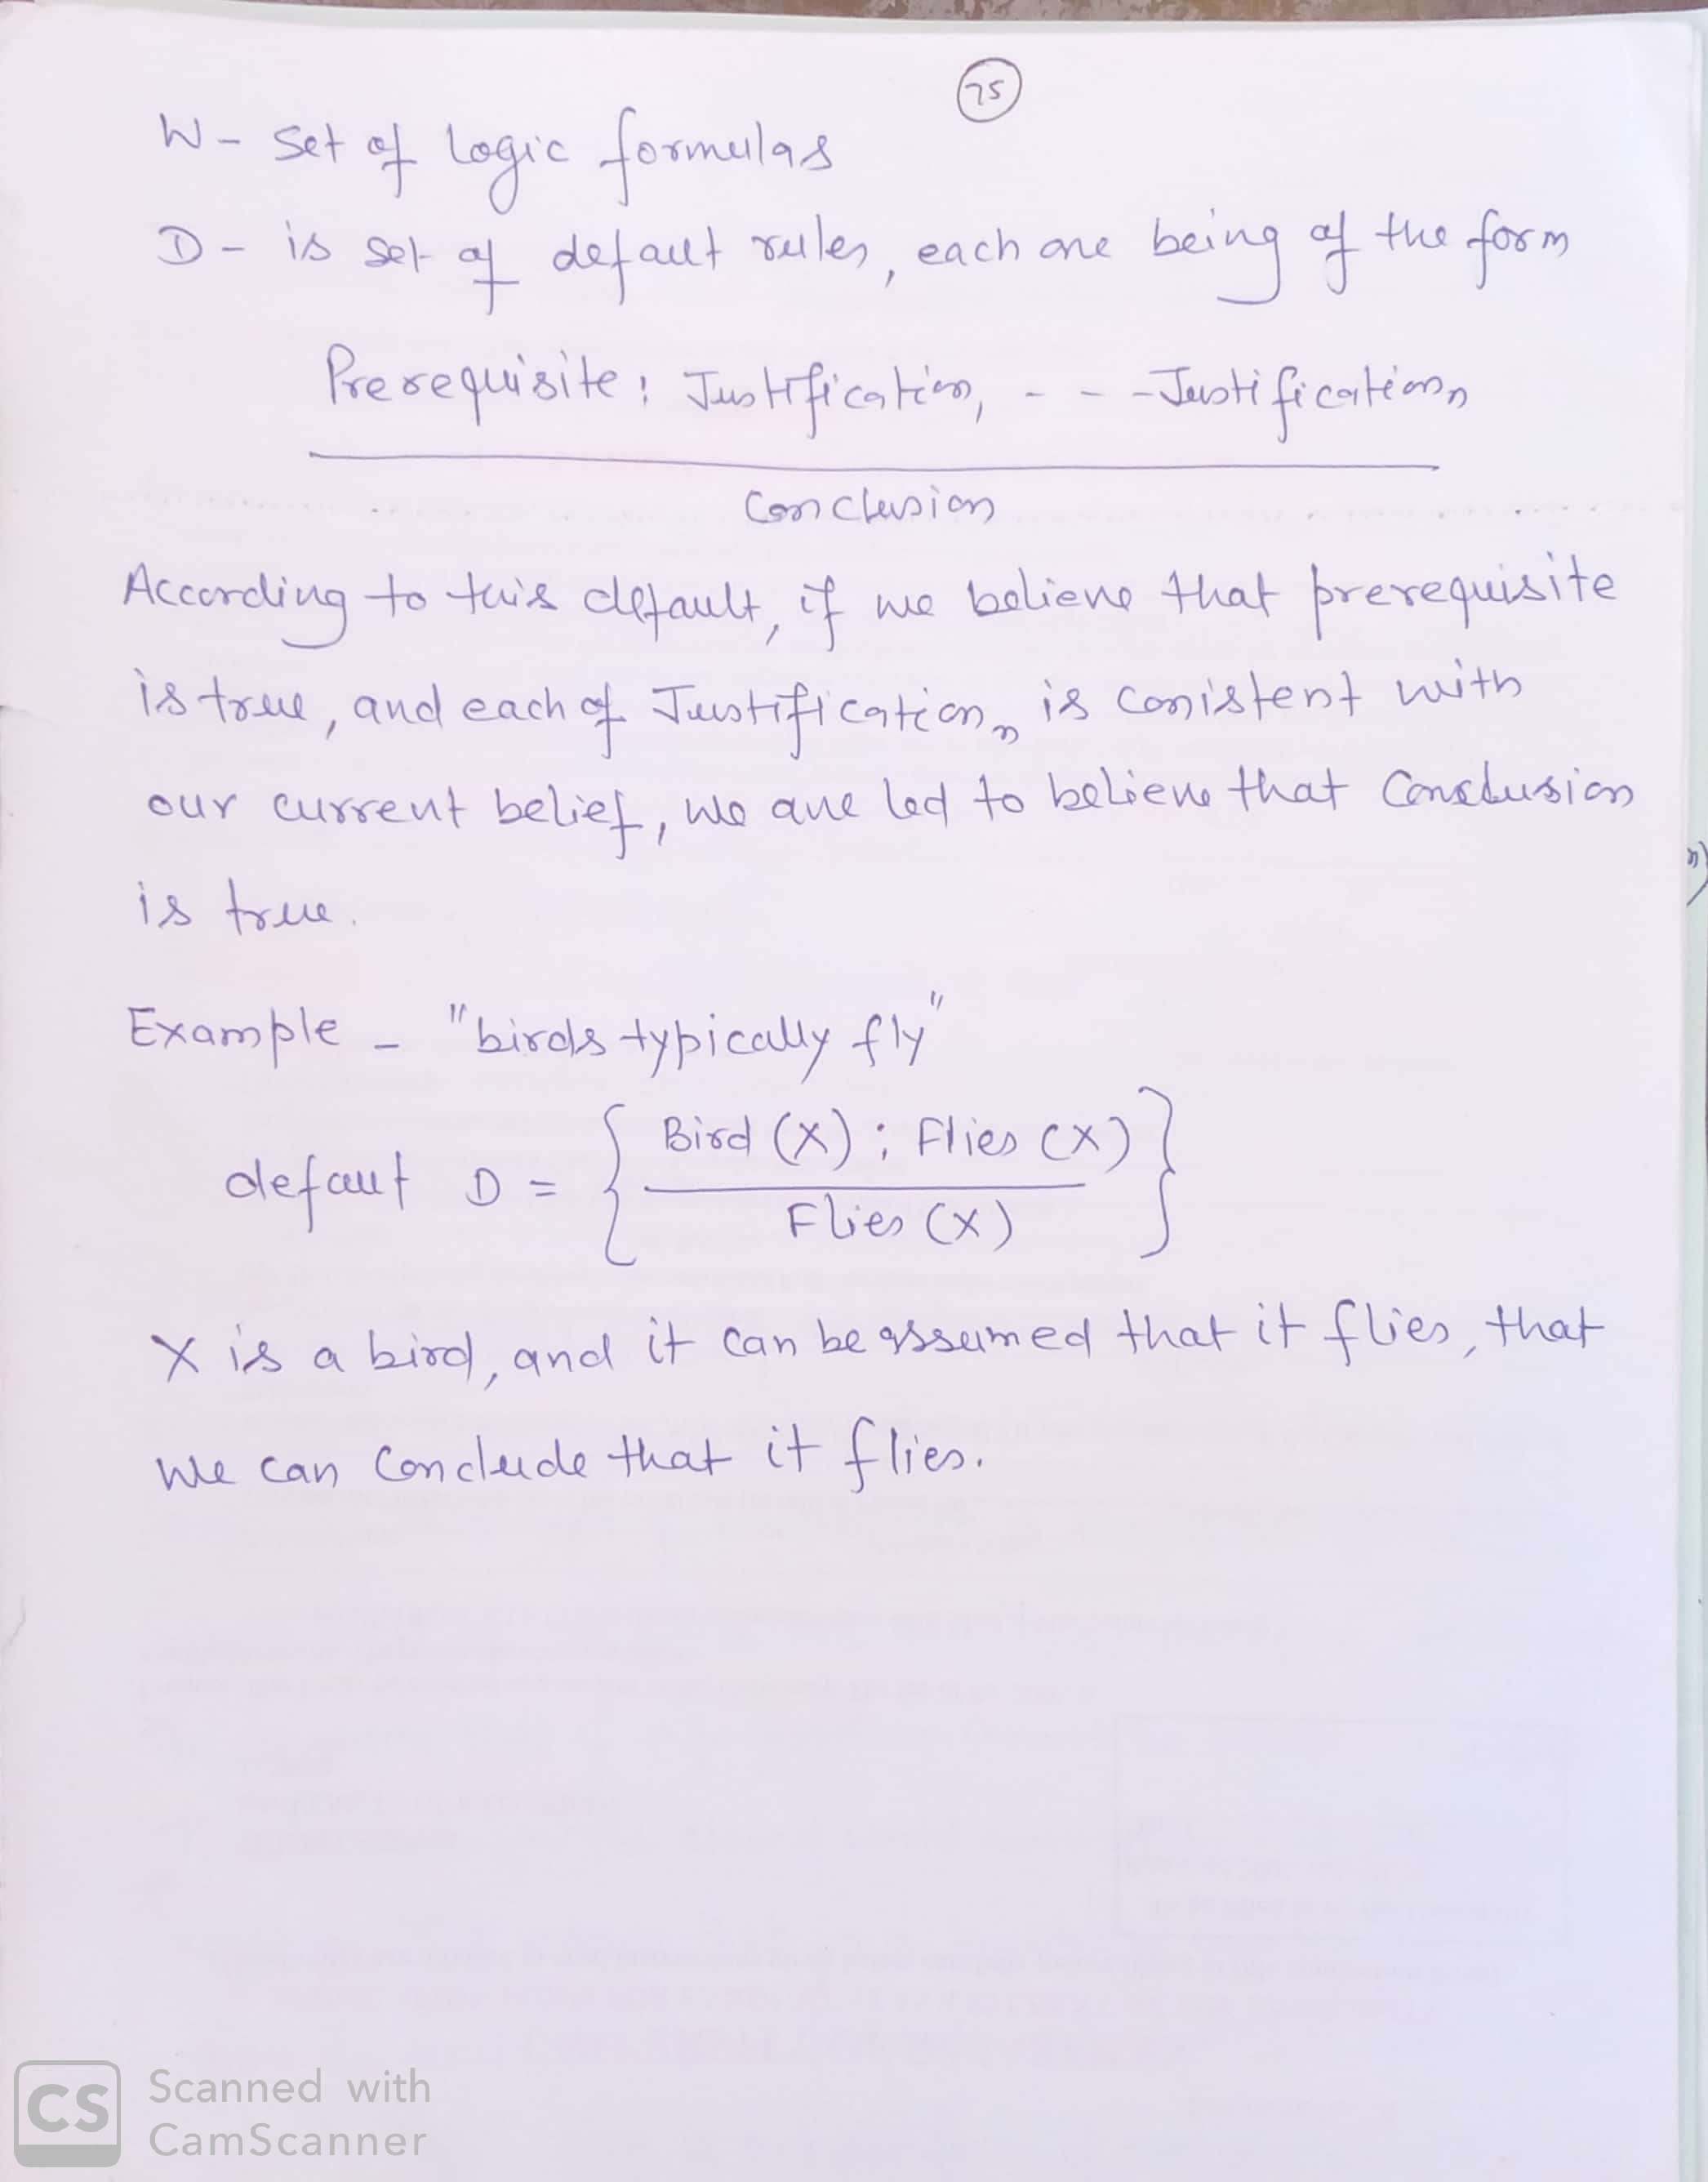 75
W - Set of Logic formulas
D - is set of default rules, each one being of the form
Prerequisite : Justification, - - - Justificationₙ
Conclusion
According to this default, if we believe that prerequisite
is true, and each of Justificationₙ is conistent with
our current belief, we are led to believe that Conclusion
is true.
Example - "birds typically fly"
defaut D = { Bird (X) ; Flies (X)
Flies (X) }
X is a bird, and it can be assumed that it flies, that
we can conclude that it flies.
CS Scanned with
CamScanner